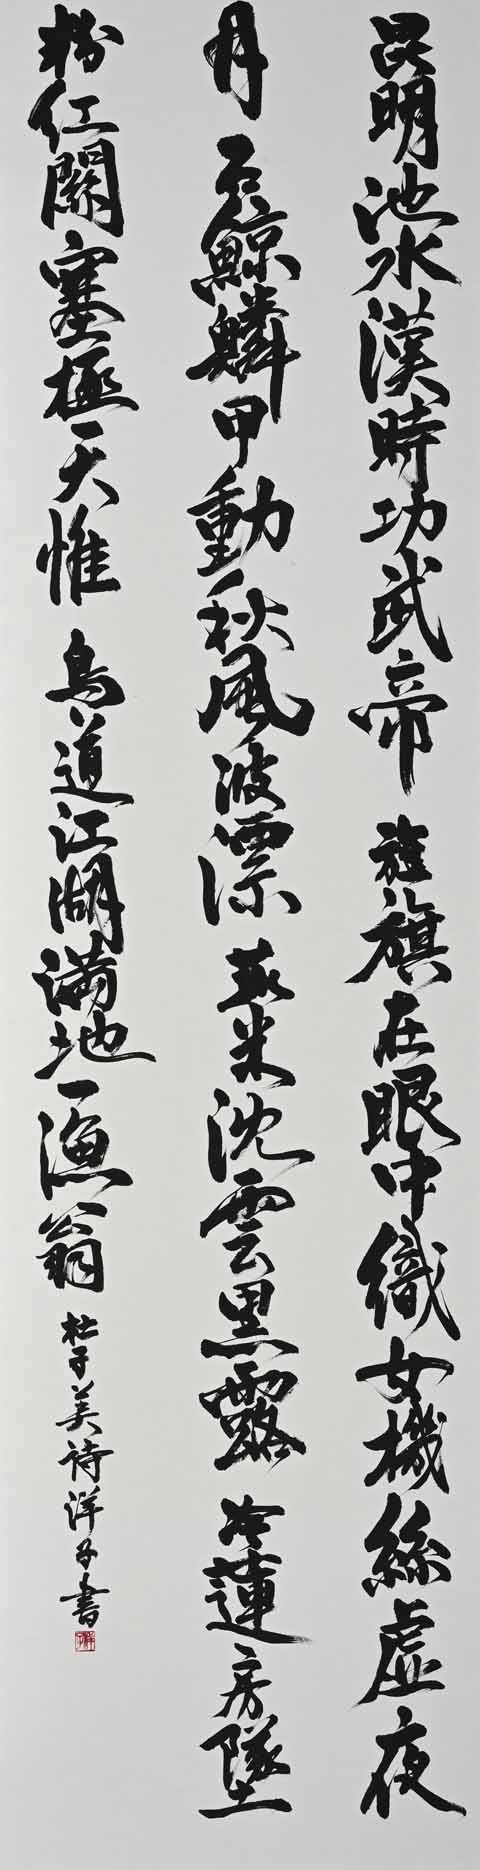 昆明池水漢時功武帝旌旗在眼中織女機絲虛夜
月石鯨鱗甲動秋風波漂菰米沈雲黑露冷蓮房墜
粉紅關塞極天惟鳥道江湖滿地一漁翁杜子美詩洋子書